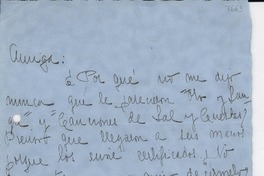 7663
Amiga:
¿Por qué no me dijo
nunca que le parecieron "Oro y San-
gre" y "Canciones de Sal y Canela?
Pienso que llegaron a sus manos
porque los envié certificados. Yo